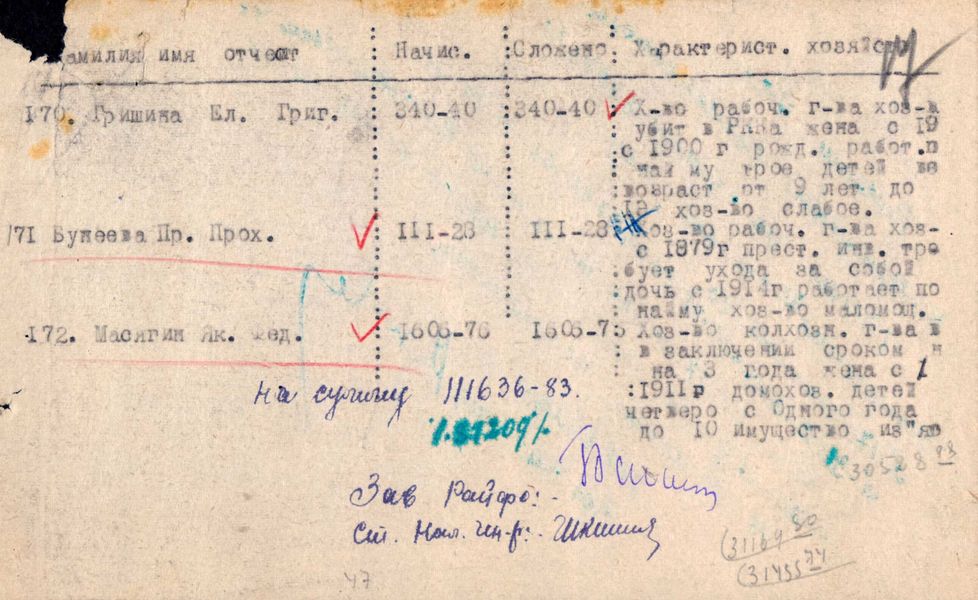 Фамилия имя отчест Начис. Сложено. Характерист. хозяйств 17
170. Гришина Ел. Григ. 340-40 340-40 Х-во рабоч. г-ва хоз-а
убит в РККа жена с 19
с 1900 г рожд. работ.п
най му трое детей ве
возраст от 9 лет до
12 хоз-во слабое.
171 Букеева Пр. Прох. 111-28 111-28 Хоз-во рабоч. г-ва хоз-
с 1879г прест. инв. тре
бует ухода за собой
дочь с 1914г работает по
найму хоз-во маломощ.
172. Масягин Як. Фед. 1606-76 1606-75 Хоз-во колхозн. г-ва в
в заключении сроком н
на 3 года жена с 1
1911г домохоз. детей
четверо с Одного года
до 10 имущество из"яв
На сумму 111636-83.
30528 93
Зав Райфо:-
Ст. Нал. Ин-р:-
31169 80
31455 74
47